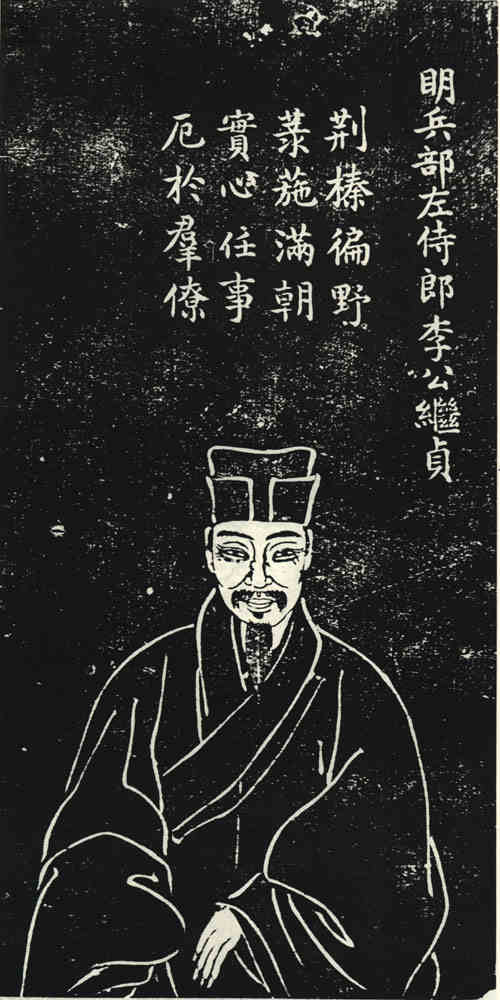 明兵部左侍郎李公繼貞
荆榛徧野
菉葹滿朝
實心任事
厄於羣僚